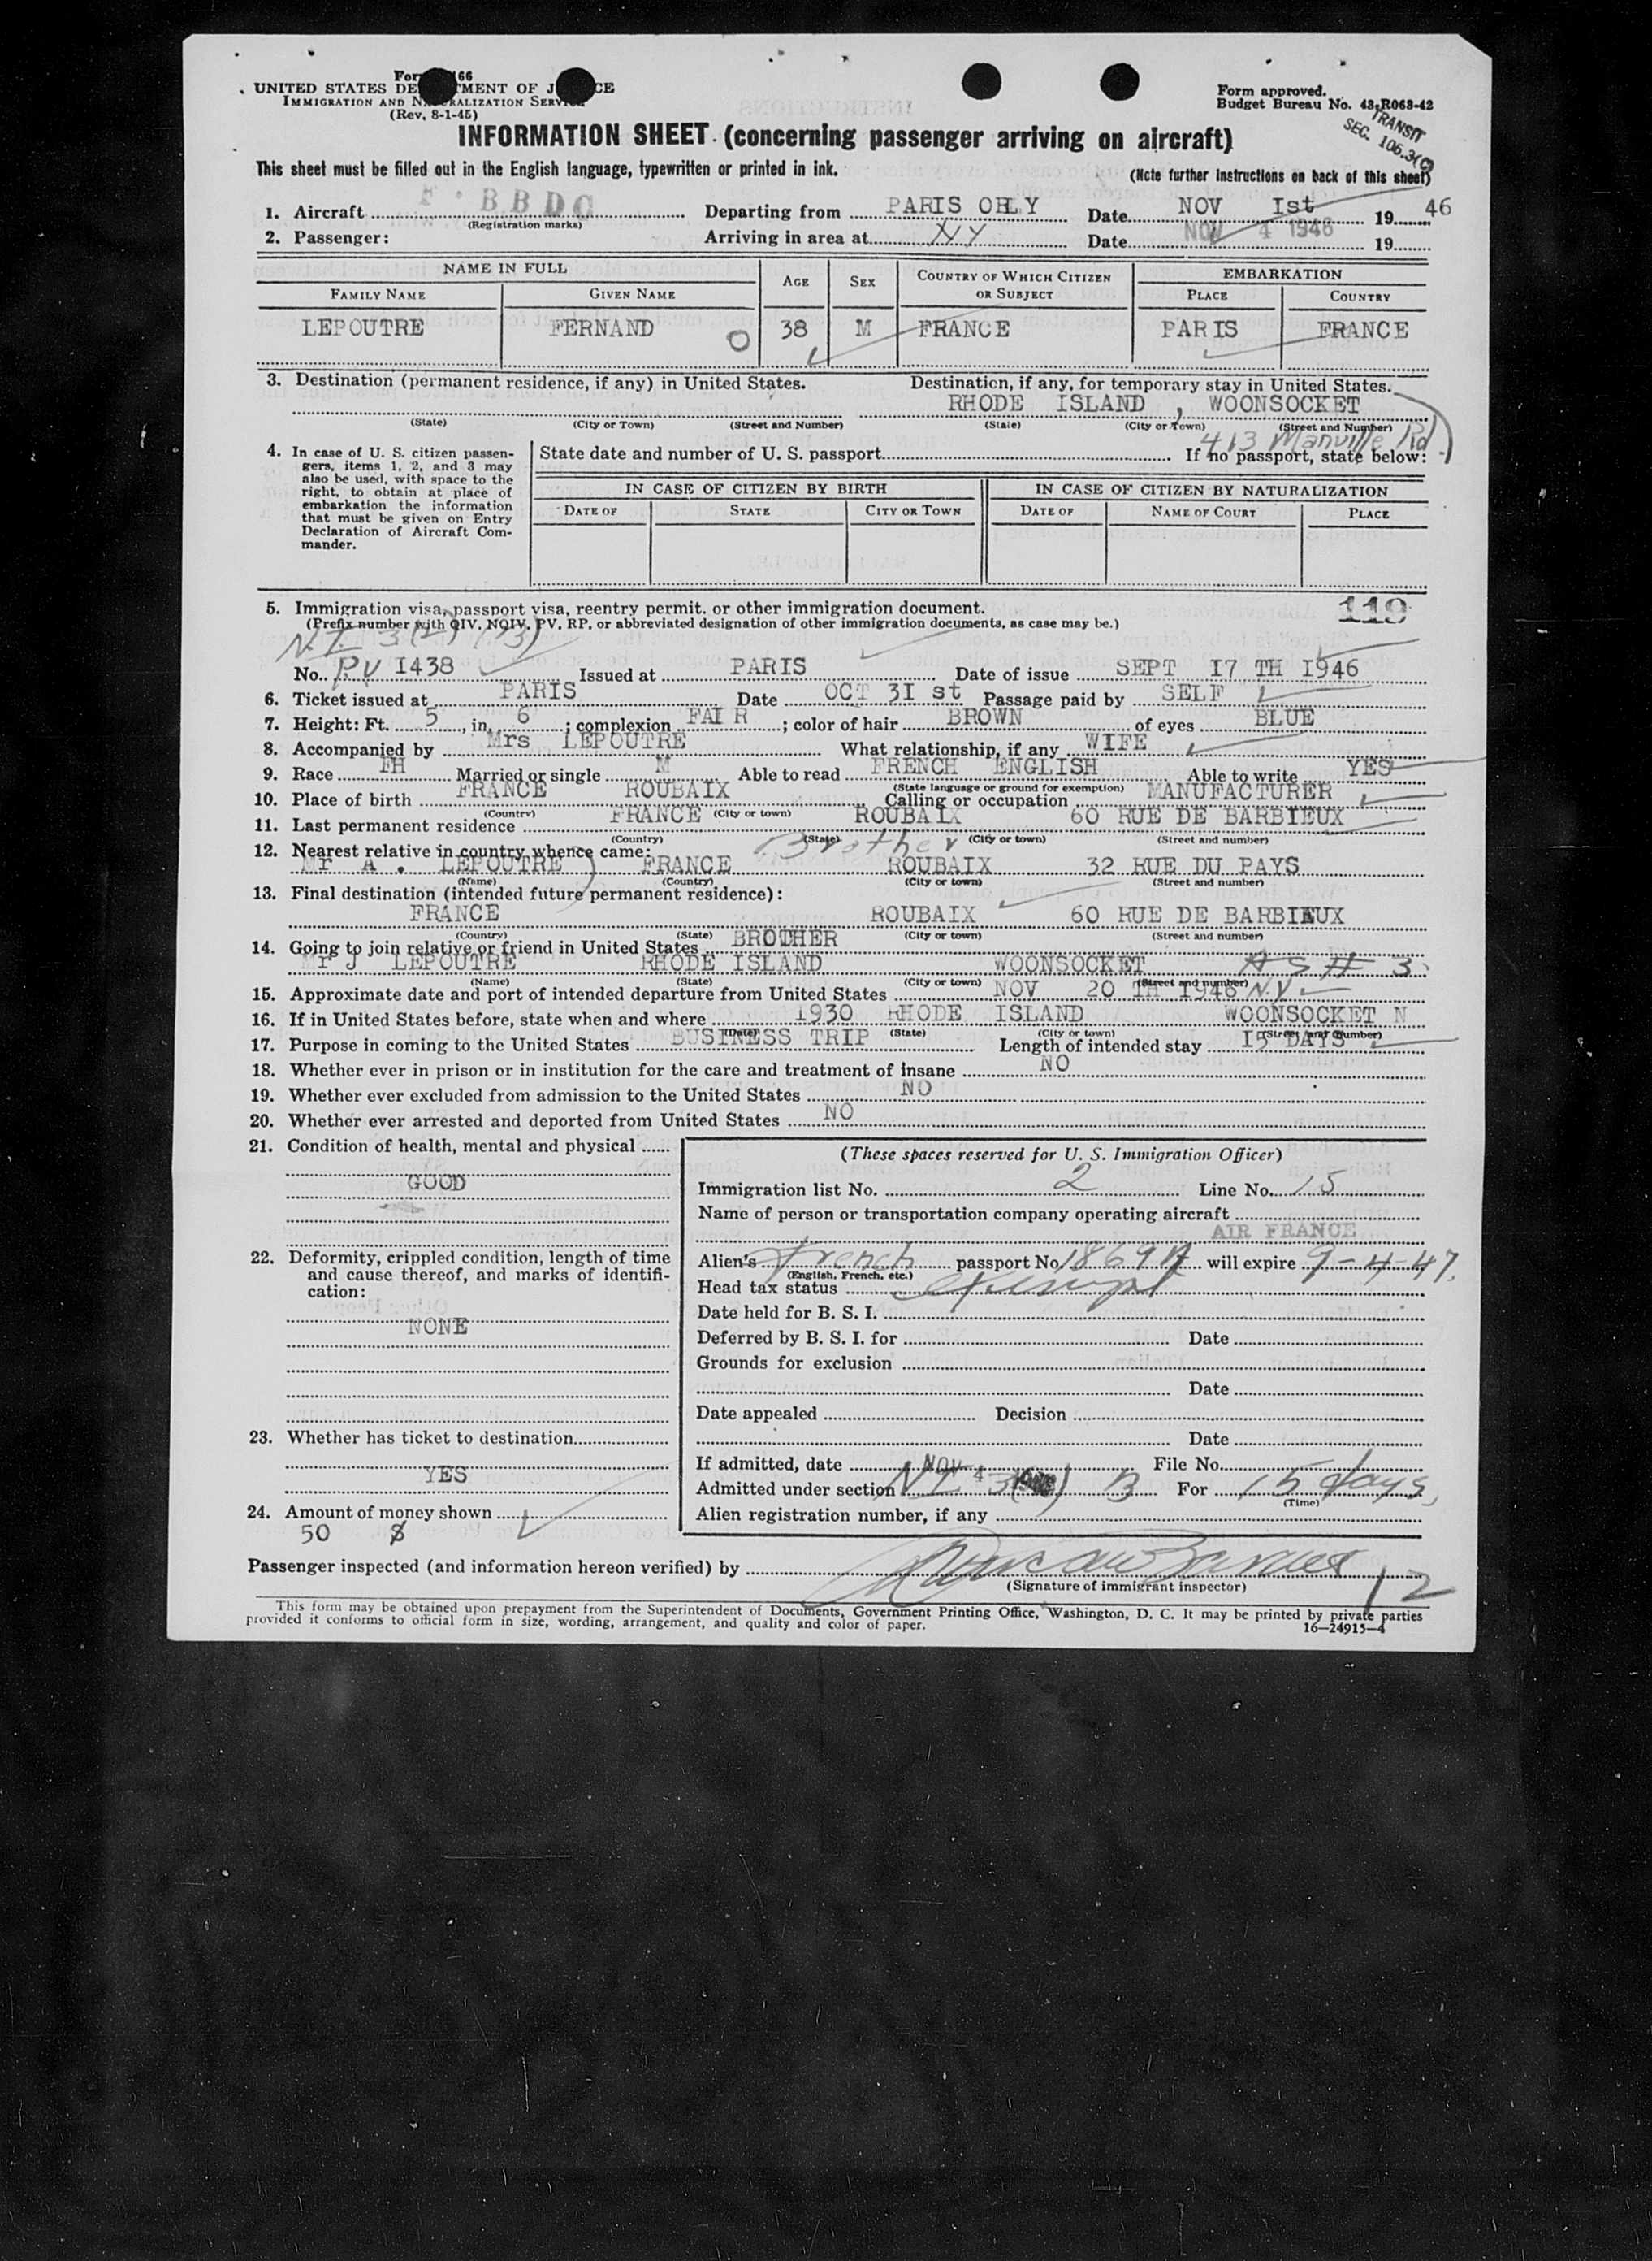 Form 166
UNITED STATES DEPARTMENT OF JUSTICE
IMMIGRATION AND NATURALIZATION SERVICE
(Rev. 8-1-45)
Form approved.
Budget Bureau No. 43-R063-42
TRANSIT
SEC. 106.3(C)
INFORMATION SHEET (concerning passenger arriving on aircraft)
This sheet must be filled out in the English language, typewritten or printed in ink.
(Note further instructions on back of this sheet)
1. Aircraft F. BBDC Departing from PARIS ORLY Date NOV Ist 19 46
(Registration marks)
2. Passenger: Arriving in area at NY Date NOV 4 1946 19
NAME IN FULL AGE SEX COUNTRY OF WHICH CITIZEN OR SUBJECT EMBARKATION
FAMILY NAME GIVEN NAME PLACE COUNTRY
LEPOUTRE FERNAND 0 38 M FRANCE PARIS FRANCE
3. Destination (permanent residence, if any) in United States. Destination, if any, for temporary stay in United States.
RHODE ISLAND , WOONSOCKET
(State) (City or Town) (Street and Number) (State) (City or Town) (Street and Number)
413 Manville Rd
4. In case of U. S. citizen passengers, items 1, 2, and 3 may also be used, with space to the right, to obtain at place of embarkation the information that must be given on Entry Declaration of Aircraft Commander.
State date and number of U. S. passport If no passport, state below:
IN CASE OF CITIZEN BY BIRTH IN CASE OF CITIZEN BY NATURALIZATION
DATE OF STATE CITY OR TOWN DATE OF NAME OF COURT PLACE
5. Immigration visa, passport visa, reentry permit, or other immigration document. 119
(Prefix number with QIV, NQIV, PV, RP, or abbreviated designation of other immigration documents, as case may be.)
N.I. 3(2) (B)
No. PV 1438 Issued at PARIS Date of issue SEPT I7 TH I946
6. Ticket issued at PARIS Date OCT 3I st Passage paid by SELF
7. Height: Ft. 5, in. 6; complexion FAIR; color of hair BROWN of eyes BLUE
8. Accompanied by Mrs LEPOUTRE What relationship, if any WIFE
9. Race FH Married or single M Able to read FRENCH ENGLISH Able to write YES
(State language or ground for exemption)
10. Place of birth FRANCE ROUBAIX Calling or occupation MANUFACTURER
(Country) (City or town)
11. Last permanent residence FRANCE ROUBAIX 60 RUE DE BARBIEUX
(Country) (State) (City or town) (Street and number)
12. Nearest relative in country whence came: Brother
Mr A . LEPOUTRE FRANCE ROUBAIX 32 RUE DU PAYS
(Name) (Country) (City or town) (Street and number)
13. Final destination (intended future permanent residence):
FRANCE ROUBAIX 60 RUE DE BARBIEUX
(Country) (State) (City or town) (Street and number)
14. Going to join relative or friend in United States BROTHER
Mr J LEPOUTRE RHODE ISLAND WOONSOCKET AS # 3
(Name) (State) (City or town) (Street and number)
15. Approximate date and port of intended departure from United States NOV 20 TH I946 N.Y
16. If in United States before, state when and where 1930 RHODE ISLAND WOONSOCKET N
(Date) (State) (City or town) (Street and number)
17. Purpose in coming to the United States BUSINESS TRIP Length of intended stay I5 DAYS
18. Whether ever in prison or in institution for the care and treatment of insane NO
19. Whether ever excluded from admission to the United States NO
20. Whether ever arrested and deported from United States NO
21. Condition of health, mental and physical
GOOD
22. Deformity, crippled condition, length of time and cause thereof, and marks of identification:
NONE
23. Whether has ticket to destination
YES
24. Amount of money shown
50 $
(These spaces reserved for U. S. Immigration Officer)
Immigration list No. 2 Line No. 15
Name of person or transportation company operating aircraft
AIR FRANCE
Alien's French passport No. 1869A will expire 9-4-47.
(English, French, etc.)
Head tax status exempt
Date held for B. S. I.
Deferred by B. S. I. for Date
Grounds for exclusion
Date
Date appealed Decision
Date
If admitted, date NOV 4 1946 File No.
Admitted under section NI 3(2) B For 15 days,
(Time)
Alien registration number, if any
Passenger inspected (and information hereon verified) by
(Signature of immigrant inspector) 12
This form may be obtained upon prepayment from the Superintendent of Documents, Government Printing Office, Washington, D. C. It may be printed by private parties
provided it conforms to official form in size, wording, arrangement, and quality and color of paper. 16—24915-4